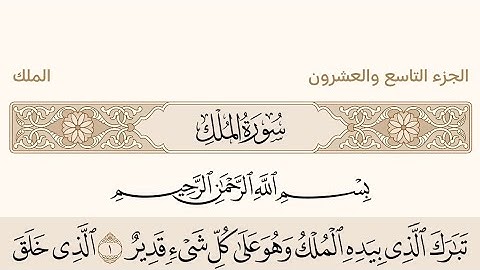 الجزء التاسع والعشرون الملك
سُورَةُ الْمُلْكِ
بِسْمِ اللَّهِ الرَّحْمَٰنِ الرَّحِيمِ
تَبَٰرَكَ ٱلَّذِى بِيَدِهِ ٱلْمُلْكُ وَهُوَ عَلَىٰ كُلِّ شَىْءٍ قَدِيرٌ ١ ٱلَّذِى خَلَقَ